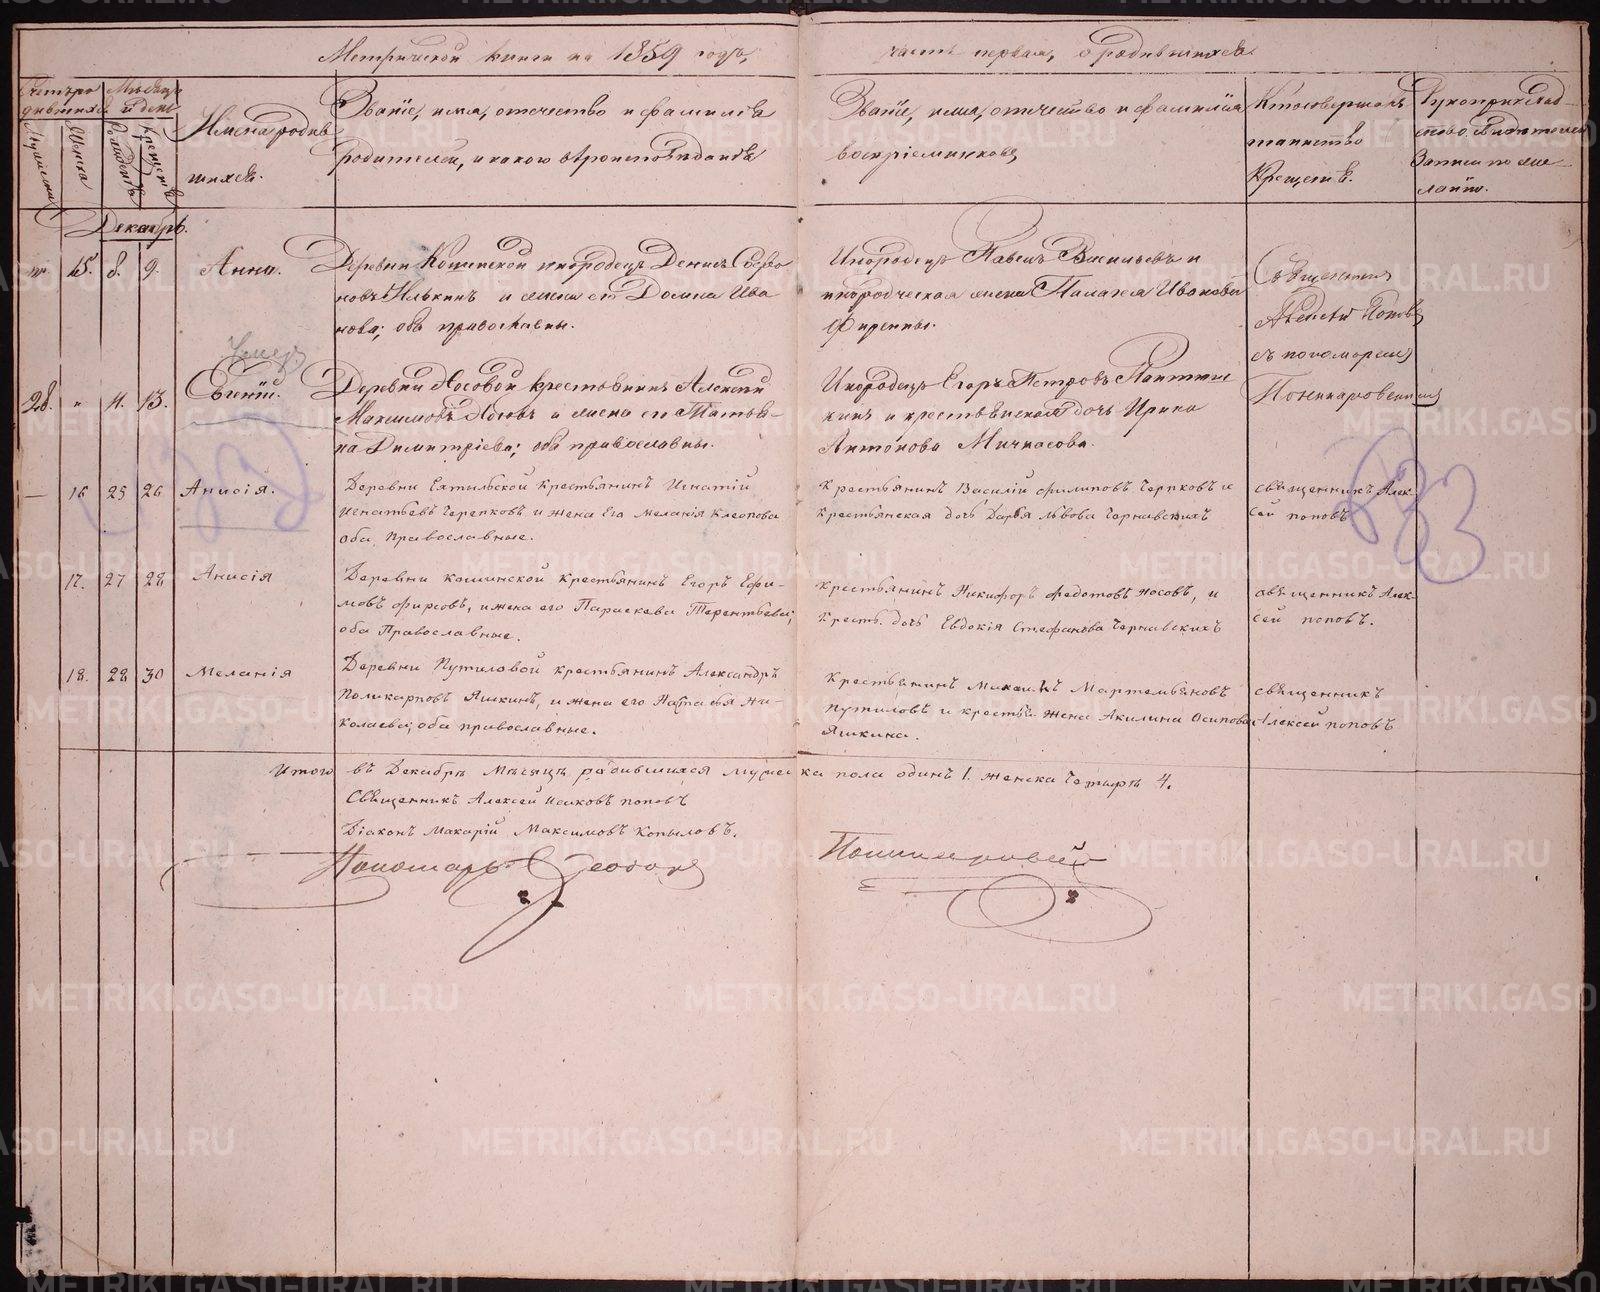 Метрической книги на 1859 годъ,
часть первая, о родившихся
Счетъ ро
дившихся
Мѣсяцъ
и день
Мужеска
Женска
Рожденія
Крещенія
Имена родив
шихся.
Званіе, имя, отечество и фамилія
родителей, и какого вѣроисповѣданія
Званіе, имя, отчество и фамилія
воспріемниковъ
Кто совершалъ
таинство
Крещенія.
Рукоприклад-
ство свидѣтелей
записи по же
ланію.
Декабрь.
15. 8. 9. Анна.
Деревни Кошинской инородецъ Денисъ
и жена его Домна Ива
нова; оба православны.
Инородецъ Павелъ Васильевъ и
инородческая жена Палагея Иванова
Священникъ
Алексѣй Поповъ
съ пономоремъ
Умеръ
28. " 11. 13. Евгеній.
Деревни Носовой крестьянинъ Алексѣй
Максимовъ Носовъ и жена его Татья-
на Димитріева; оба православны.
Инородецъ Егоръ Петровъ
кинъ и крестьянская дочь Ирина
Антонова
— 16 25 26 Анисія.
Деревни Ехтыльской крестьянинъ Игнатій
Игнатьевъ Черепковъ и жена его Меланія Клеопова
оба православные.
Крестьянинъ Василій Филиповъ и
крестьянская дочь Дарья Львова Чернавскихъ
священникъ Алек-
сей поповъ
17. 27 28 Анисія
Деревни кошинской крестьянинъ Егоръ Ефи-
мовъ фирсовъ, и жена его Параскева Терентьева;
оба Православные.
крестьянинъ Никифоръ федотовъ Носовъ, и
кресть. дочь Евдокія Стефанова Чернавскихъ
священникъ Алек-
сей поповъ.
18. 28 30 Меланія
Деревни Путиловой крестьянинъ Александръ
Поликарповъ Яшкинъ, и жена его Настасья Ни-
колаева; оба православные.
крестьянинъ Михаилъ Мартемьяновъ
путиловъ и крестья. жена Акилина Осипова
Яшкина.
священникъ
Алексей поповъ
Итого въ Декабрѣ Мѣсяцѣ родившихся мужеска пола одинъ 1. женска Четыре 4.
Священникъ Алексей Исаковъ поповъ
Діаконъ Макарій Максимовъ Копыловъ.
Пономарь Феодоръ
METRIKI.GASO-URAL.RU